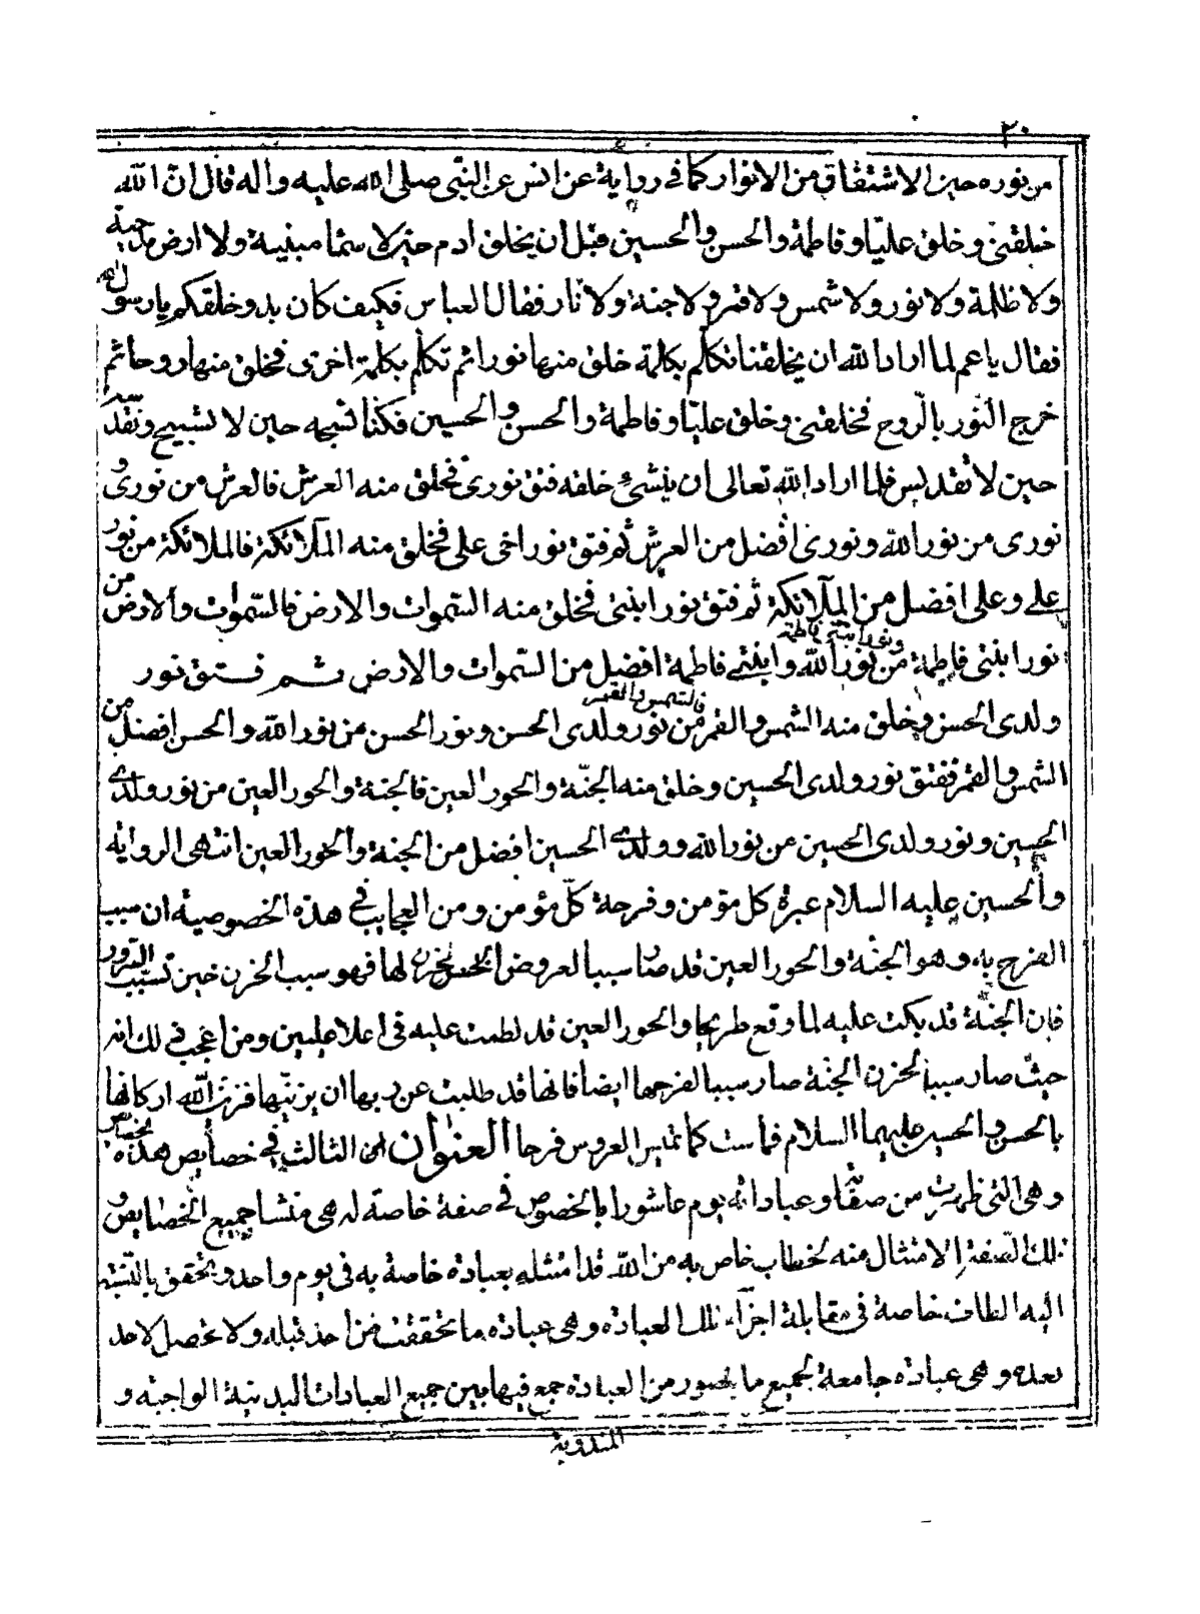 ٢٠
من نوره حين الاشتقاق من الانوار كما في رواية عن انس عن النبي صلى الله عليه واله قال ان الله
خلقني وخلق عليّا وفاطمة والحسن والحسين قبل ان يخلق ادم حين لا سماء مبنية ولا ارض مدحية
ولا ظلمة ولا نور ولا شمس ولا قمر ولا جنة ولا نار فقال العباس فكيف كان بدو خلقكم يا رسول الله
فقال يا عم لما اراد الله ان يخلقنا تكلّم بكلمة خلق منها نورا ثم تكلّم بكلمة اخرى فخلق منها روحا ثم
خرج النّور بالرّوح فخلقني وخلق عليّا وفاطمة والحسن والحسين فكنّا نسبحه حين لا تسبيح ونقدّسه
حين لا تقديس فلما اراد الله تعالى ان ينشئ خلقه فتق نوري فخلق منه العرش فالعرش من نوري و
نوري من نور الله ونوري افضل من العرش ثم فتق نور اخي علي فخلق منه الملائكة فالملائكة من نور
علي وعلي افضل من الملائكة ثم فتق نور ابنتي فخلق منه السّموات والارض فالسّموات والارض من
نور ابنتي فاطمة ونور ابنتي فاطمة من نور الله وابنتي فاطمة افضل من السّموات والارض ثم فتق نور
ولدي الحسن وخلق منه الشمس والقمر فالشمس والقمر من نور ولدي الحسن ونور الحسن من نور الله والحسن افضل من
الشمس والقمر ففتق نور ولدي الحسين وخلق منه الجنّة والحور العين فالجنة والحور العين من نور ولدي
الحسين ونور ولدي الحسين من نور الله وولدي الحسين افضل من الجنة والحور العين انتهى الرواية
والحسين عليه السلام عبرة كل مؤمن وفرحة كلّ مؤمن ومن العجايب في هذه الخصوصية ان سبب
الفرح به وهو الجنّة والحور العين قد صار سببا لعروض الحزن لها فهو سبب الحزن حين تسبب السّرور
فان الجنّة قد بكت عليه لما وقع طريحا والحور العين قد لطمت عليه في اعلا عليين ومن اعجب ذلك انه
حيث صار سببا لحزن الجنة صار سببا لفرحها ايضا فانها قد طلبت عن ربها ان يزيّنها فزيّن الله اركانها
بالحسن والحسين عليهما السلام فماست كما تميس العروس فرحا العنوان الثالث في خصايص هذه الخصايص
وهي التي ظهرت من صفات وعباداته يوم عاشورا بالخصوص في صفة خاصة له هي منشا جميع الخصايص و
تلك الصّفة الامتثال منه لخطاب خاص به من الله قد امتثله بعبادة خاصة به في يوم واحد وتحقق بالنسبة
اليه الطاف خاصة في مقابلة اجزاء تلك العبادة وهي عبادة ما تحققت من احد قبله ولا تحصل لاحد
بعده وهي عبادة جامعة لجميع ما يتصور من العبادة جمع فيها بين جميع العبادات البدنية الواجبه و
المندوبة